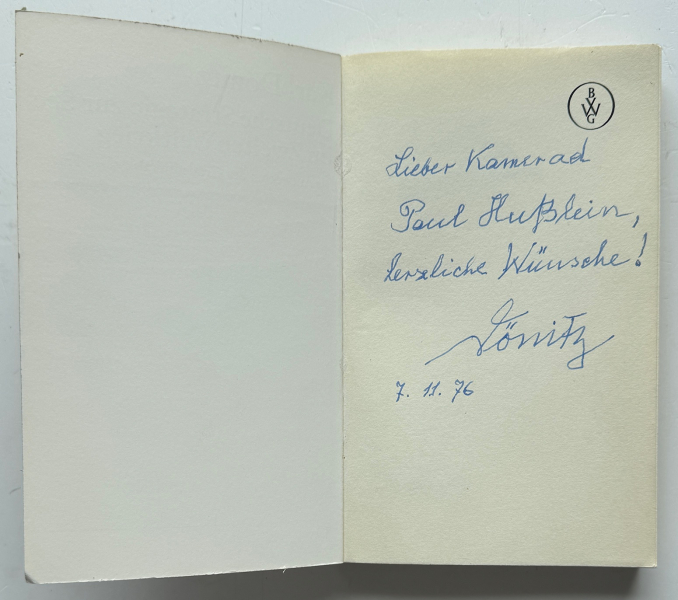 B
W
G
Lieber Kamerad
Paul Hußlein,
herzliche Wünsche!
Dönitz
7. 11. 76